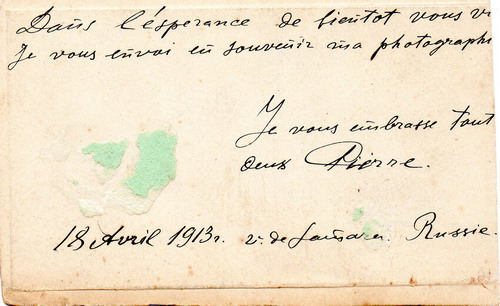 Dans l'ésperance de bientot vous v
Je vous envoi en souvenir ma photograph
Je vous embrasse tout
deux Pierre.
18 Avril 1913 г. v. de Samara. Russie.